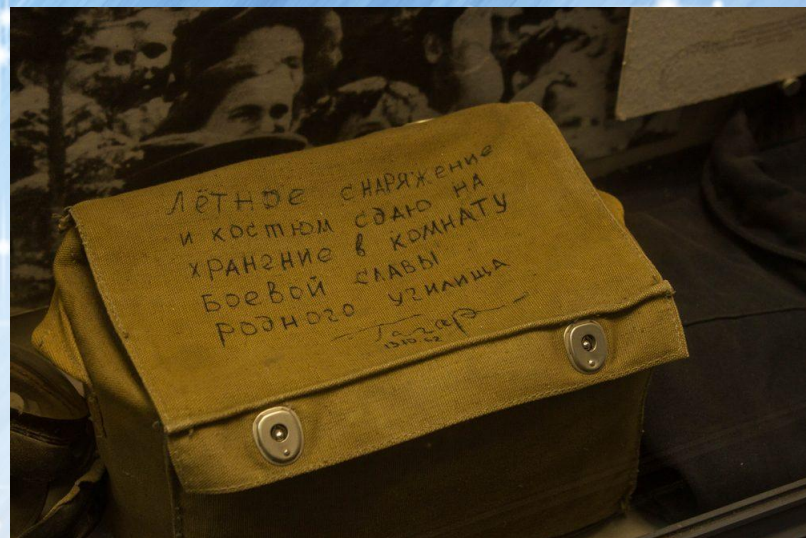 Лётное снаряжение
и костюм сдаю на
хранение в комнату
боевой славы
родного училища
Гагар